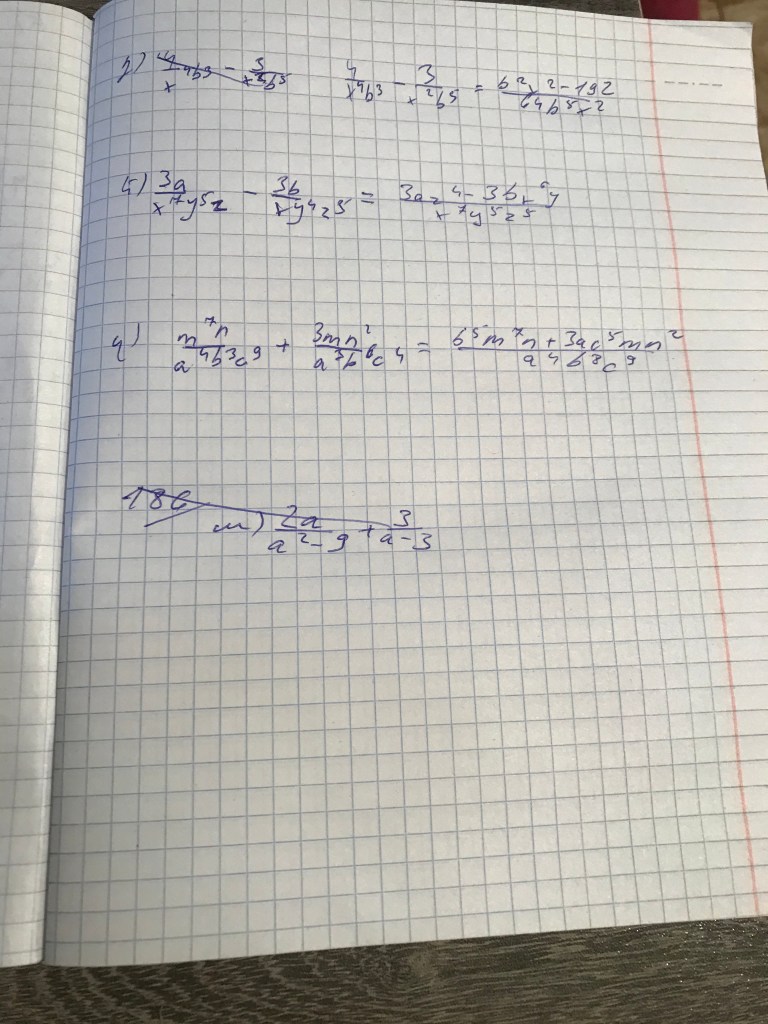 4/x 4b3 - 3/x²b⁵ 4/x⁴b³ - 3/x²b⁵ = b²x²-192/64b⁵x²
3a/x⁷y⁵z - 3b/xy⁴z⁵ = 3az⁴-3bx⁶y/x⁷y⁵z⁵
ч) m⁷n/a⁴b³c⁹ + 3mn²/a³b⁶c⁴ = b⁵m⁷n+3ac⁵mn²/a⁴b³c⁹
186
m) 2a/a²-9 + 3/a-3